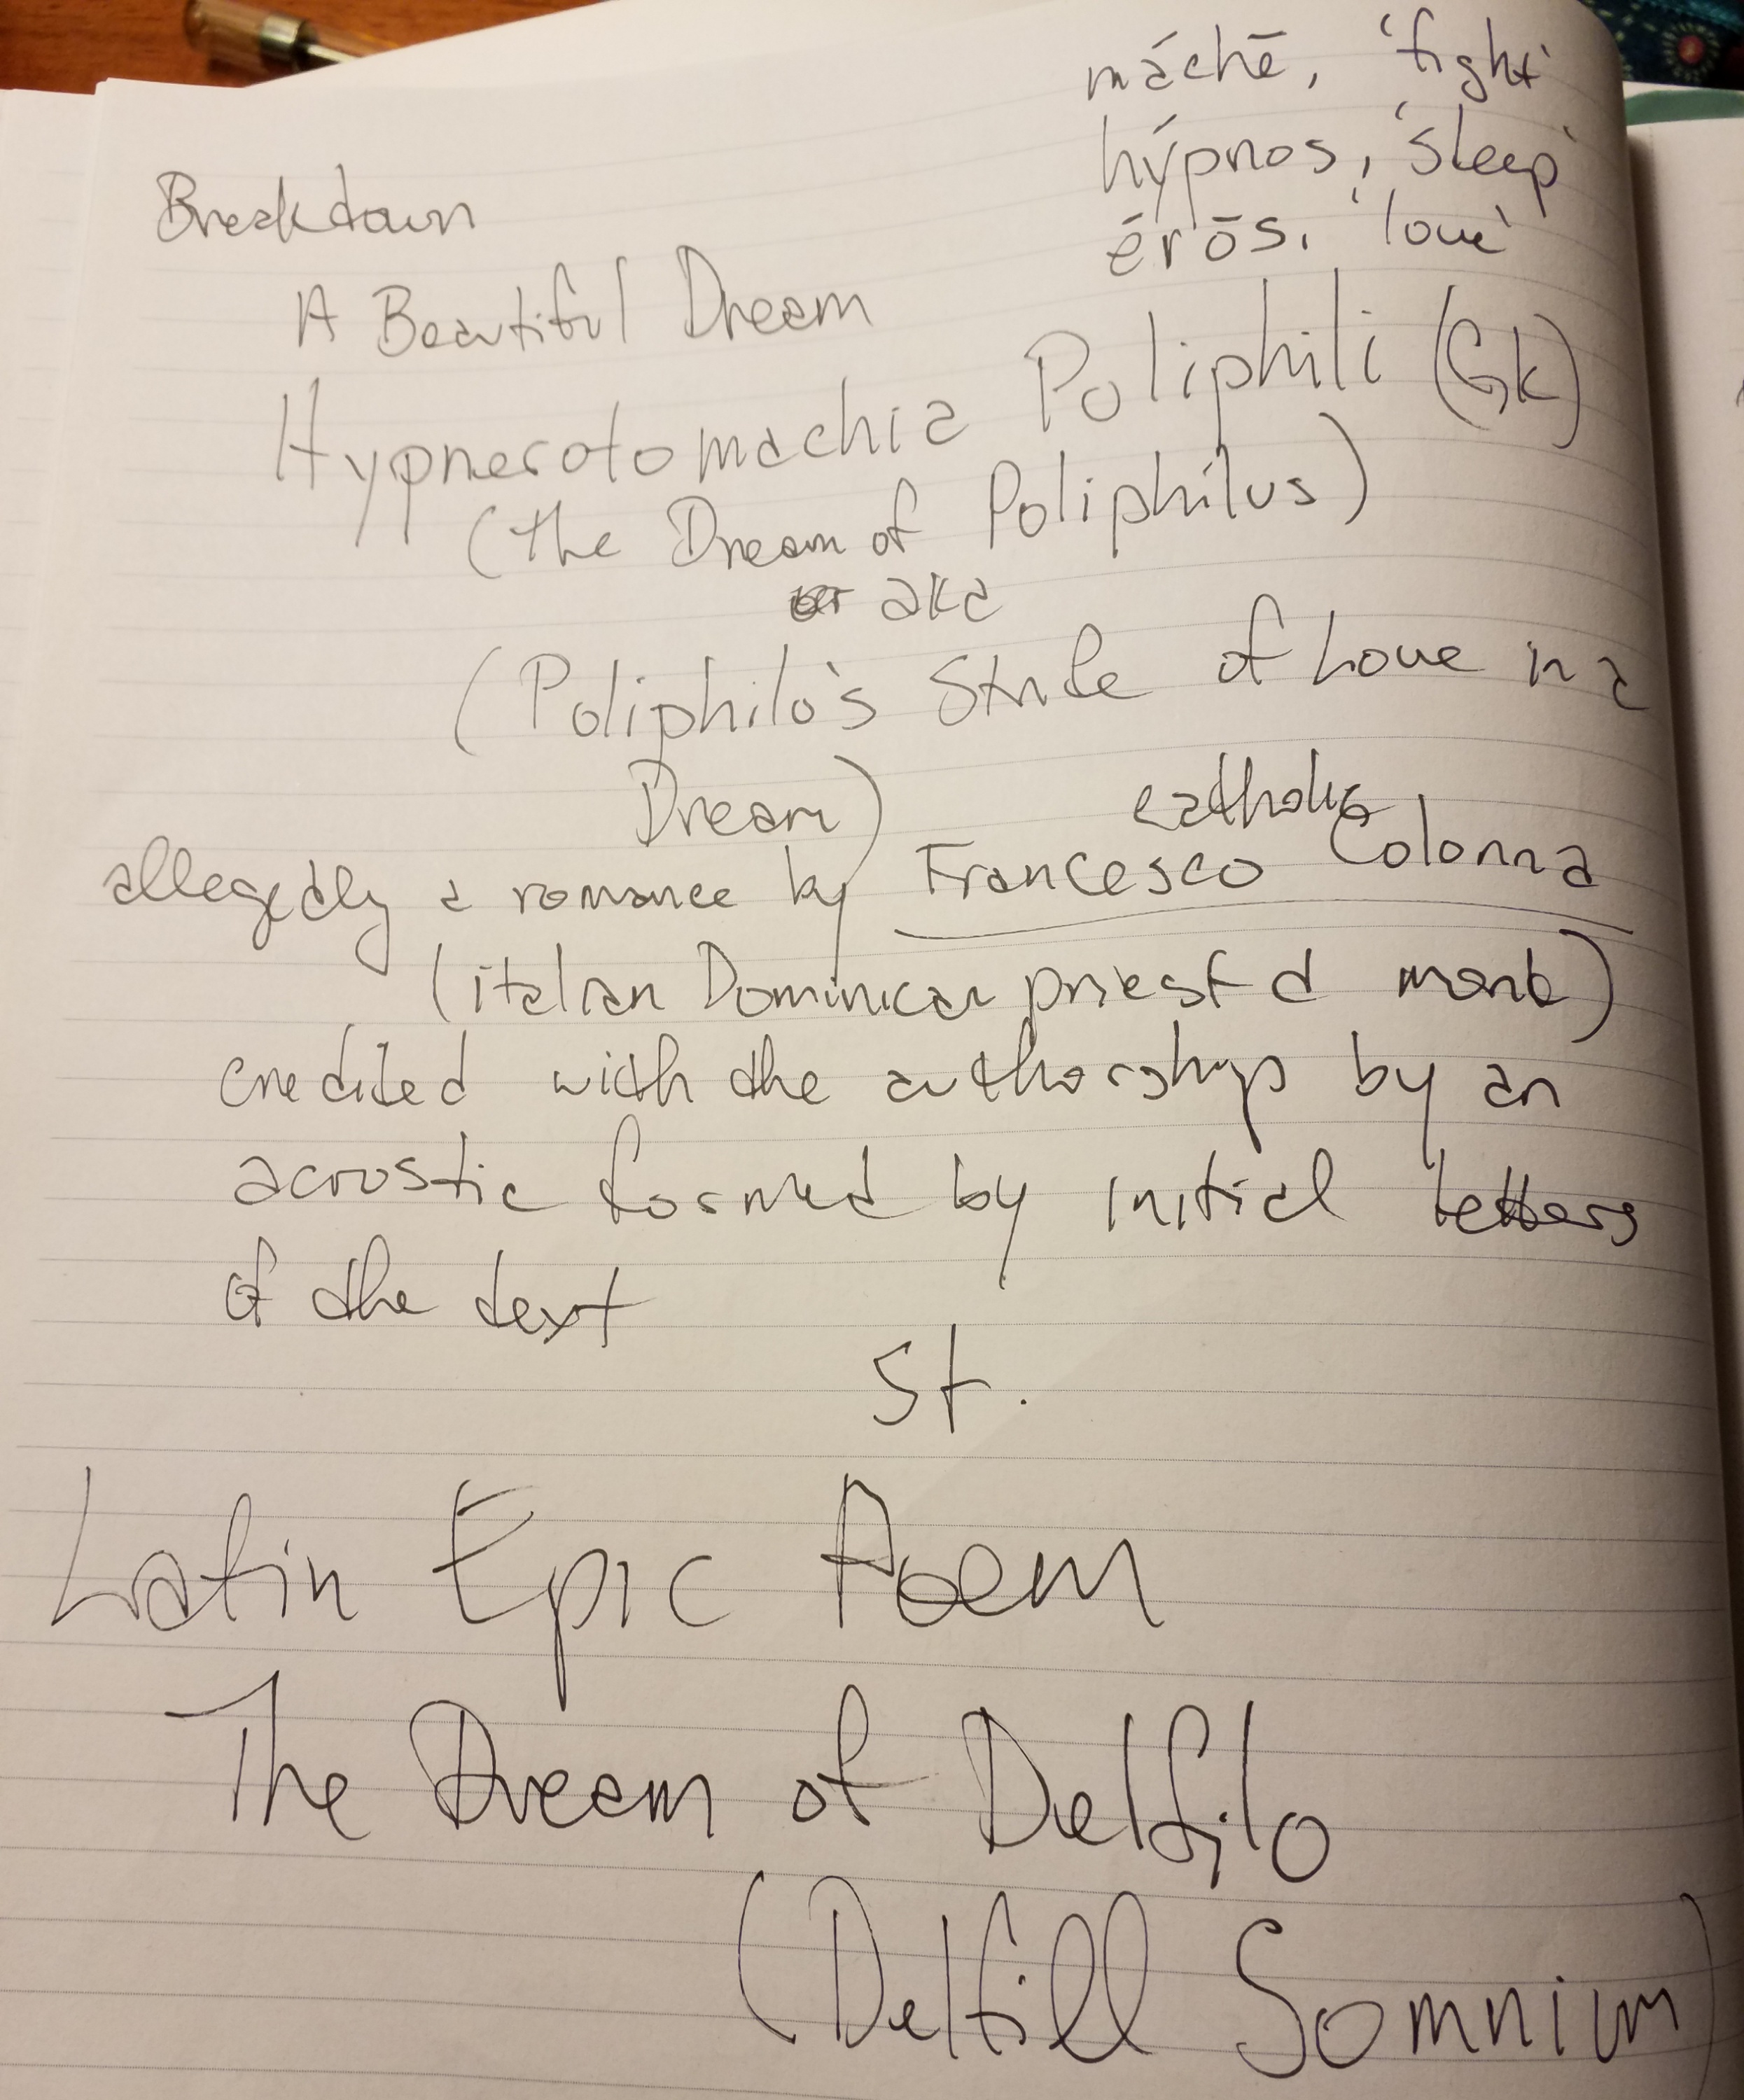 máchē, 'fight'
hýpnos, 'sleep'
érōs, 'love'
Breakdown
A Beautiful Dream
Hypnerotomachia Poliphili (Gk)
(the Dream of Poliphilus)
aka
(Poliphilo's Strife of Love in a
Dream)
catholic
allegedly a romance by Francesco Colonna
(italian Dominican priest & monk)
credited with the authorship by an
acrostic formed by initial letters
of the text
St.
Latin Epic Poem
The Dream of Delfilo
(Delfill Somnium)